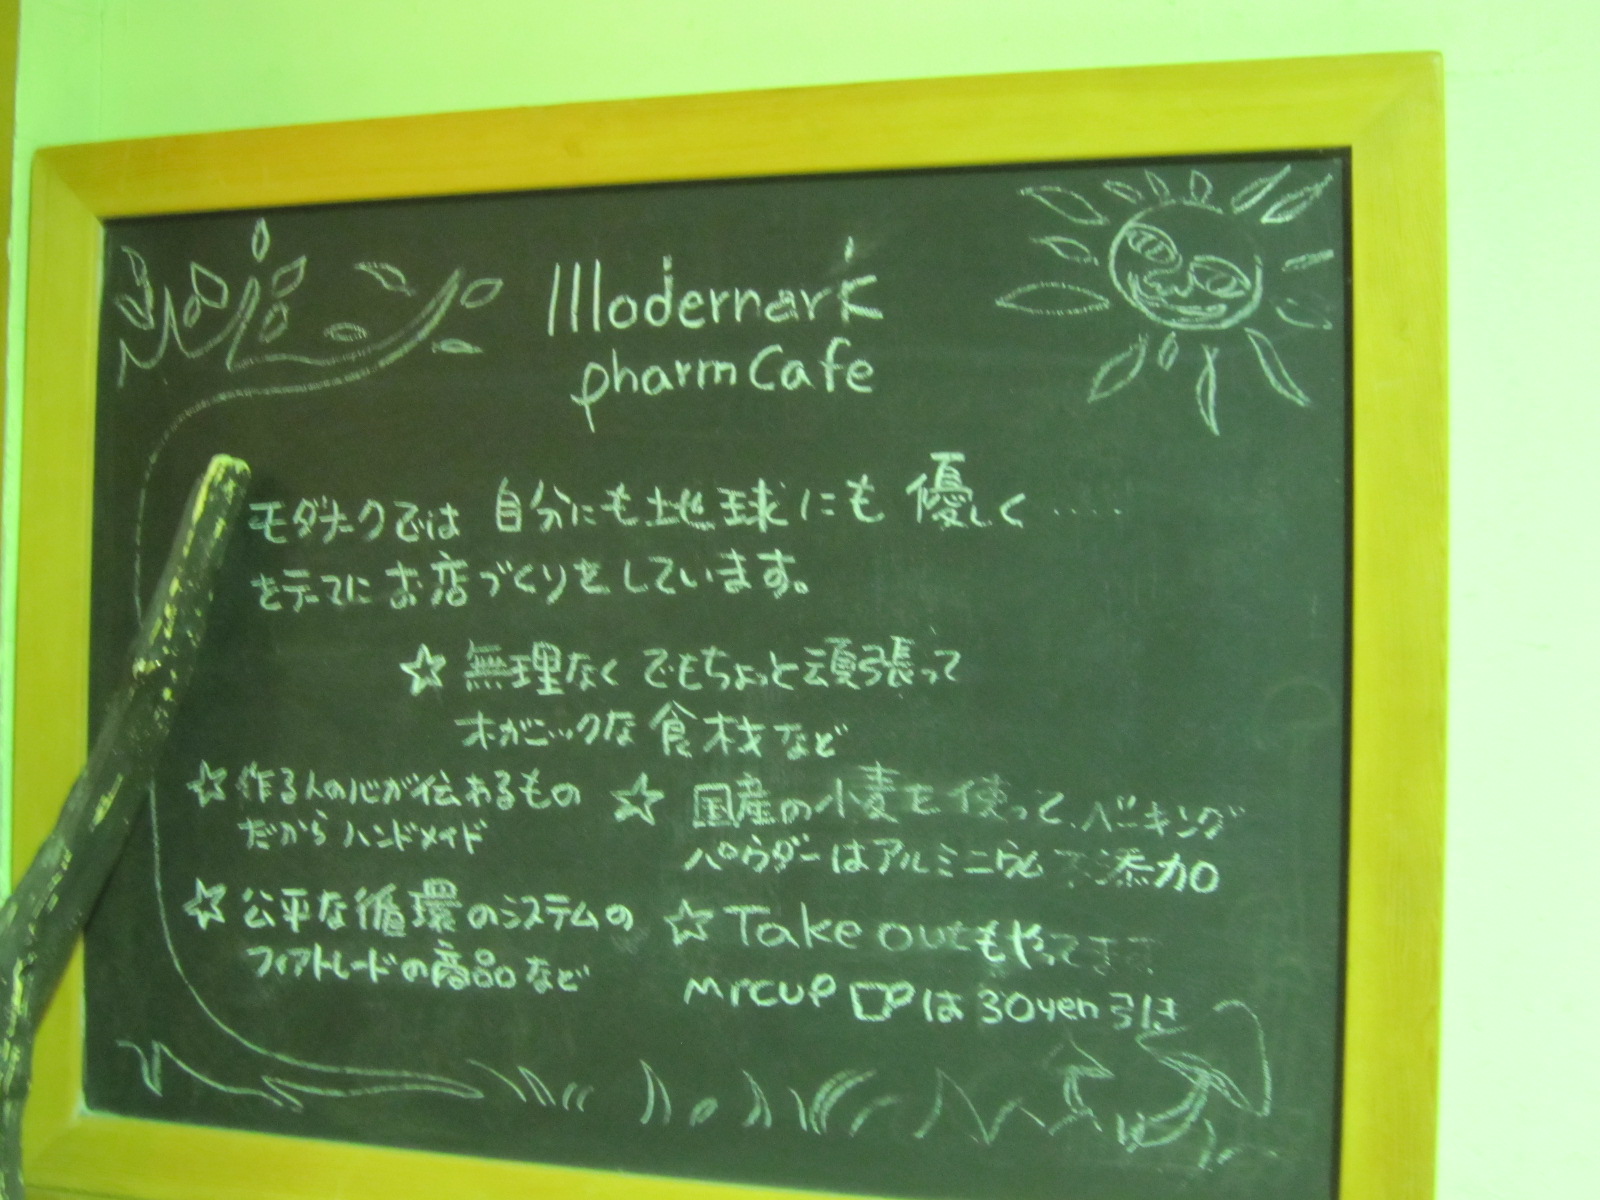 Modernark
pharm Cafe
モダナークでは 自分にも地球にも 優しく.....
をテーマに お店づくりをしています。
☆ 無理なく でもちょっと頑張って
オーガニックな 食材など
☆ 作る人の心が伝わるもの
だから ハンドメイド
☆ 国産の小麦を使って、ベーキング
パウダーはアルミニウム不添加
☆ 公平な循環のシステムの
フェアトレードの商品など
☆ Take outもやってます
my cup は 30yen 引き